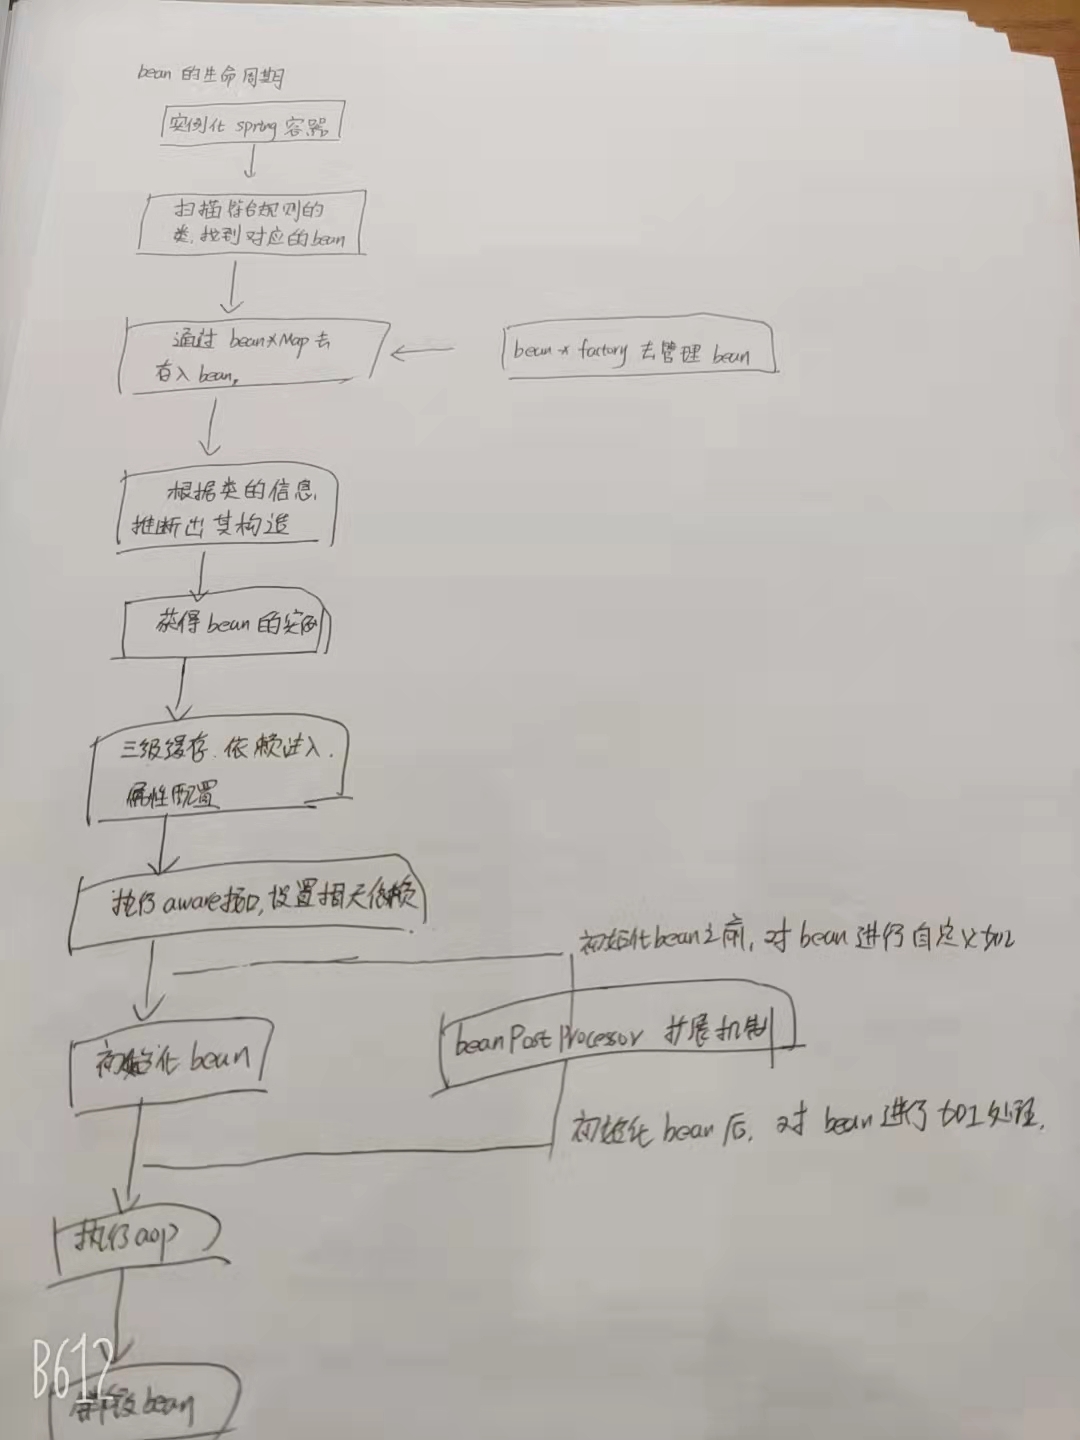 bean 的生命周期
实例化 spring 容器
扫描符合规则的
类,找到对应的bean
通过 bean*Map去
存入 bean,
bean * factory 去管理 bean
根据类的信息,
推断出其构造
获得 bean 的实例
三级缓存.依赖注入.
属性配置
执行aware接口,设置相关依赖
初始化bean之前,对 bean进行自定义加工
初始化 bean
beanPostProcessor 扩展机制
初始化 bean后, 对 bean进行加工处理.
执行aop
bean
B612